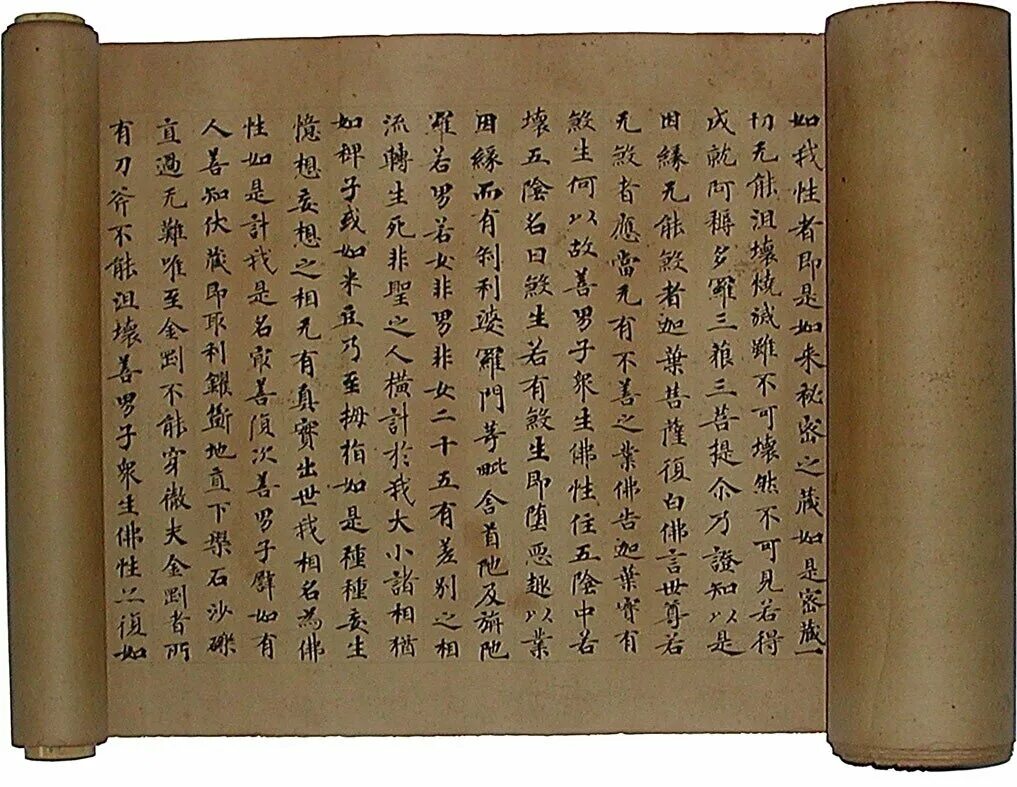 如我性者即是如来祕密之藏如是密藏一
切无能沮壞燒滅雖不可壞然不可見若得
成就阿耨多羅三藐三菩提尒乃證知以是
因緣无能煞者迦葉菩薩復白佛言世尊若
无煞者應當无有不善之業佛告迦葉實有
煞生何以故善男子眾生佛性住五陰中若
壞五陰名曰煞生若有煞生即墮惡趣以業
因緣而有刹利婆羅門等毗舍首陁及旃陁
羅若男若女非男非女二十五有差別之相
流轉生死非聖之人橫計於我大小諸相猶
如稗子或如米豆乃至拇指如是種種妄生
憶想妄想之相无有真實出世我相名為佛
性如是計我是名㝡善復次善男子譬如有
人善知伏藏即取利钁斵地直下槃石沙礫
直過无難唯至金剛不能穿徹夫金剛者所
有刀斧不能沮壞善男子眾生佛性亦復如